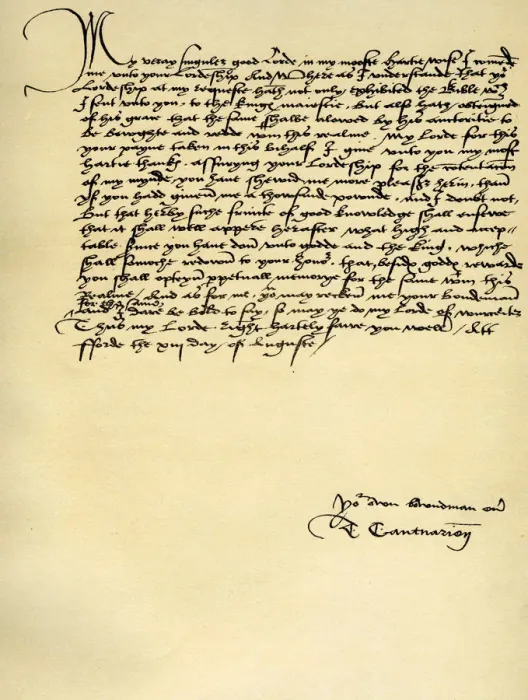 My veray singuler good Lorde in my mooste hartie wise I comend
me unto your Lordeship And where as I understande that yor
Lordeship at my requeste hath not only exhibited the Bible wch
I sent unto you, to the kinges maiestie, but also hath obteigned
of his grace that the same shalbe alowed by his auctoritie to
be bowghte and redde wtin this realme, My Lorde for this
your payne taken in this bihalf I give unto you my most
hartie thanks, assuryng your Lordeship for the contentacion
of my mynde, you have shewid me more pleasr herin, than
yf you hadd givenn me a thowsande pownde, and I doubt not,
But that herby suche fruicte of good knowledge shall ensewe
that it shall well appere herafter what high and accep-
table s you have donn unto godde and the king, whiche
shall somoche redown to your honor, that, besids goddes rewarde
you shall opteyn ppetuall memorye for the same wtin this
Realme, And as for me, yo may recken me your bondman
for the same
And I dare be bold to say, so may ye do my Lorde of wurcester
Thus my Lorde, right hartely faire you well, Att
fforde the xiii day of Auguste
Yor own bowndman
T Cantuarien